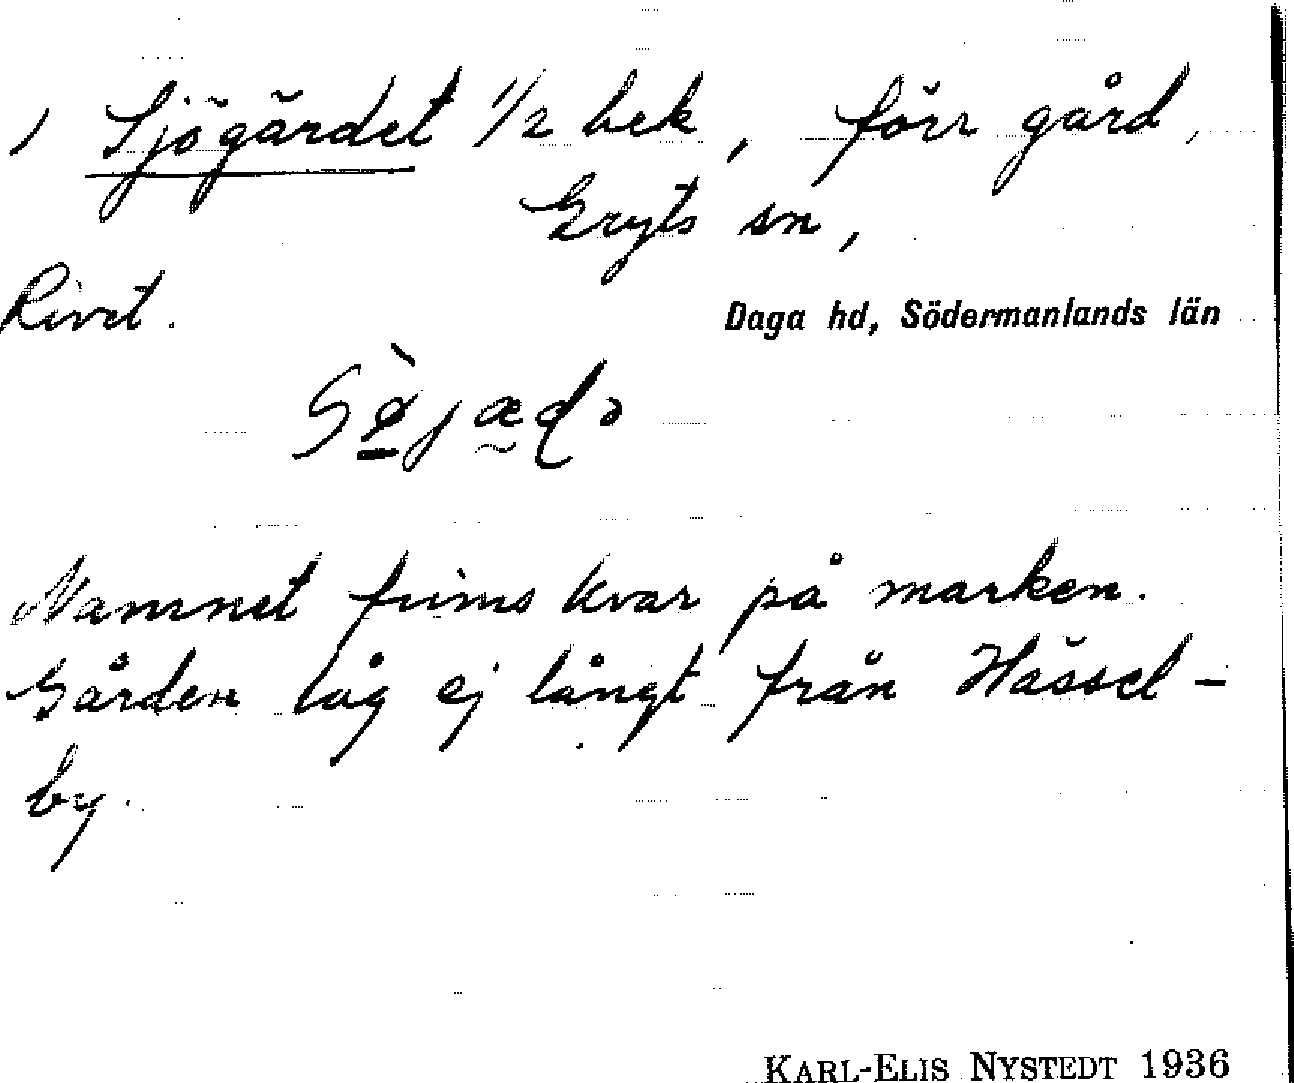 / Sjögärdet 1/2 bek, förr gård,
Gryts sn,
Rivet.
Daga hd, Södermanlands län
Namnet finns kvar på marken.
Gården låg ej långt från Hässel-
by.
KARL-ELIS NYSTEDT 1936